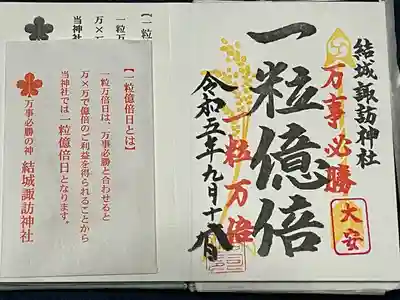 結城諏訪神社
万事必勝
大安
一粒億倍
一粒万倍
令和五年九月十八日
【一粒億倍日とは】
一粒万倍日は、万事必勝と合わせると
万×万で億倍のご利益を得られることから
当神社では一粒億倍日となります。
万事必勝の神 結城諏訪神社